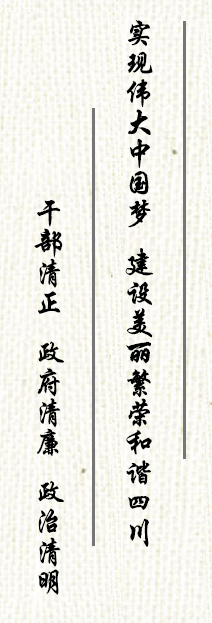 实现伟大中国梦 建设美丽繁荣和谐四川
干部清正 政府清廉 政治清明